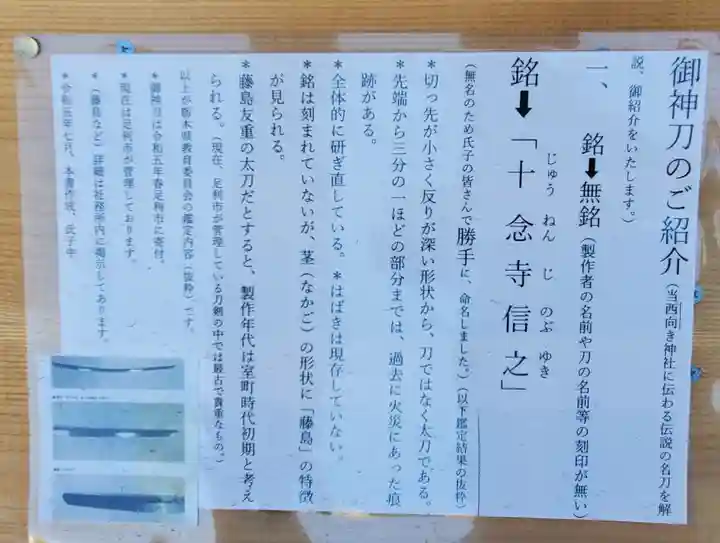 御神刀のご紹介（当西向き神社に伝わる伝説の名刀を解
説、御紹介をいたします。）
一、　銘➡無銘（製作者の名前や刀の名前等の刻印が無い）
銘➡「十念寺信之」
じゅう ねん じ のぶ ゆき
（無名のため氏子の皆さんで勝手に、命名しました。）（以下鑑定結果の抜粋）
＊切っ先が小さく反りが深い形状から、刀ではなく太刀である。
＊先端から三分の一ほどの部分までは、過去に火災にあった痕
跡がある。
＊全体的に研ぎ直している。＊はばきは現存していない。
＊銘は刻まれていないが、茎（なかご）の形状に「藤島」の特徴
が見られる。
＊藤島友重の太刀だとすると、製作年代は室町時代初期と考え
られる。（現在、足利市が管理している刀剣の中では最古で貴重なもの。）
以上が栃木県教育委員会の鑑定内容（抜粋）です。
＊御神刀は令和五年春足利市に寄付。
＊現在は足利市が管理しております。
＊（藤島など）詳細は社務所内に掲示してあります。
＊令和五年七月、本書作成、氏子中